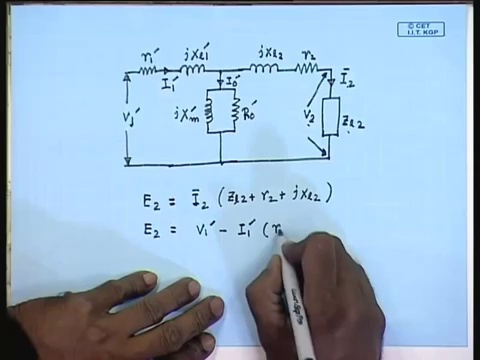 © CET
I.I.T. KGP
r₁′ jx_l1′ jx_l2 r₂
I₁′ I₀′ Ī₂
V₁′ jX_m′ R₀′ V₂ Z_l2
E₂ = Ī₂ (Z_l2 + r₂ + jx_l2)
E₂ = V₁′ − I₁′ (r